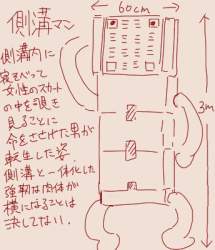 側溝マン
60cm
3m
側溝内に
寝そべって
女性のスカート
の中を覗き
見ることに
命をささげた男が
転生した姿.
側溝と一体化した
強靭な肉体が
横になることは
決してない.